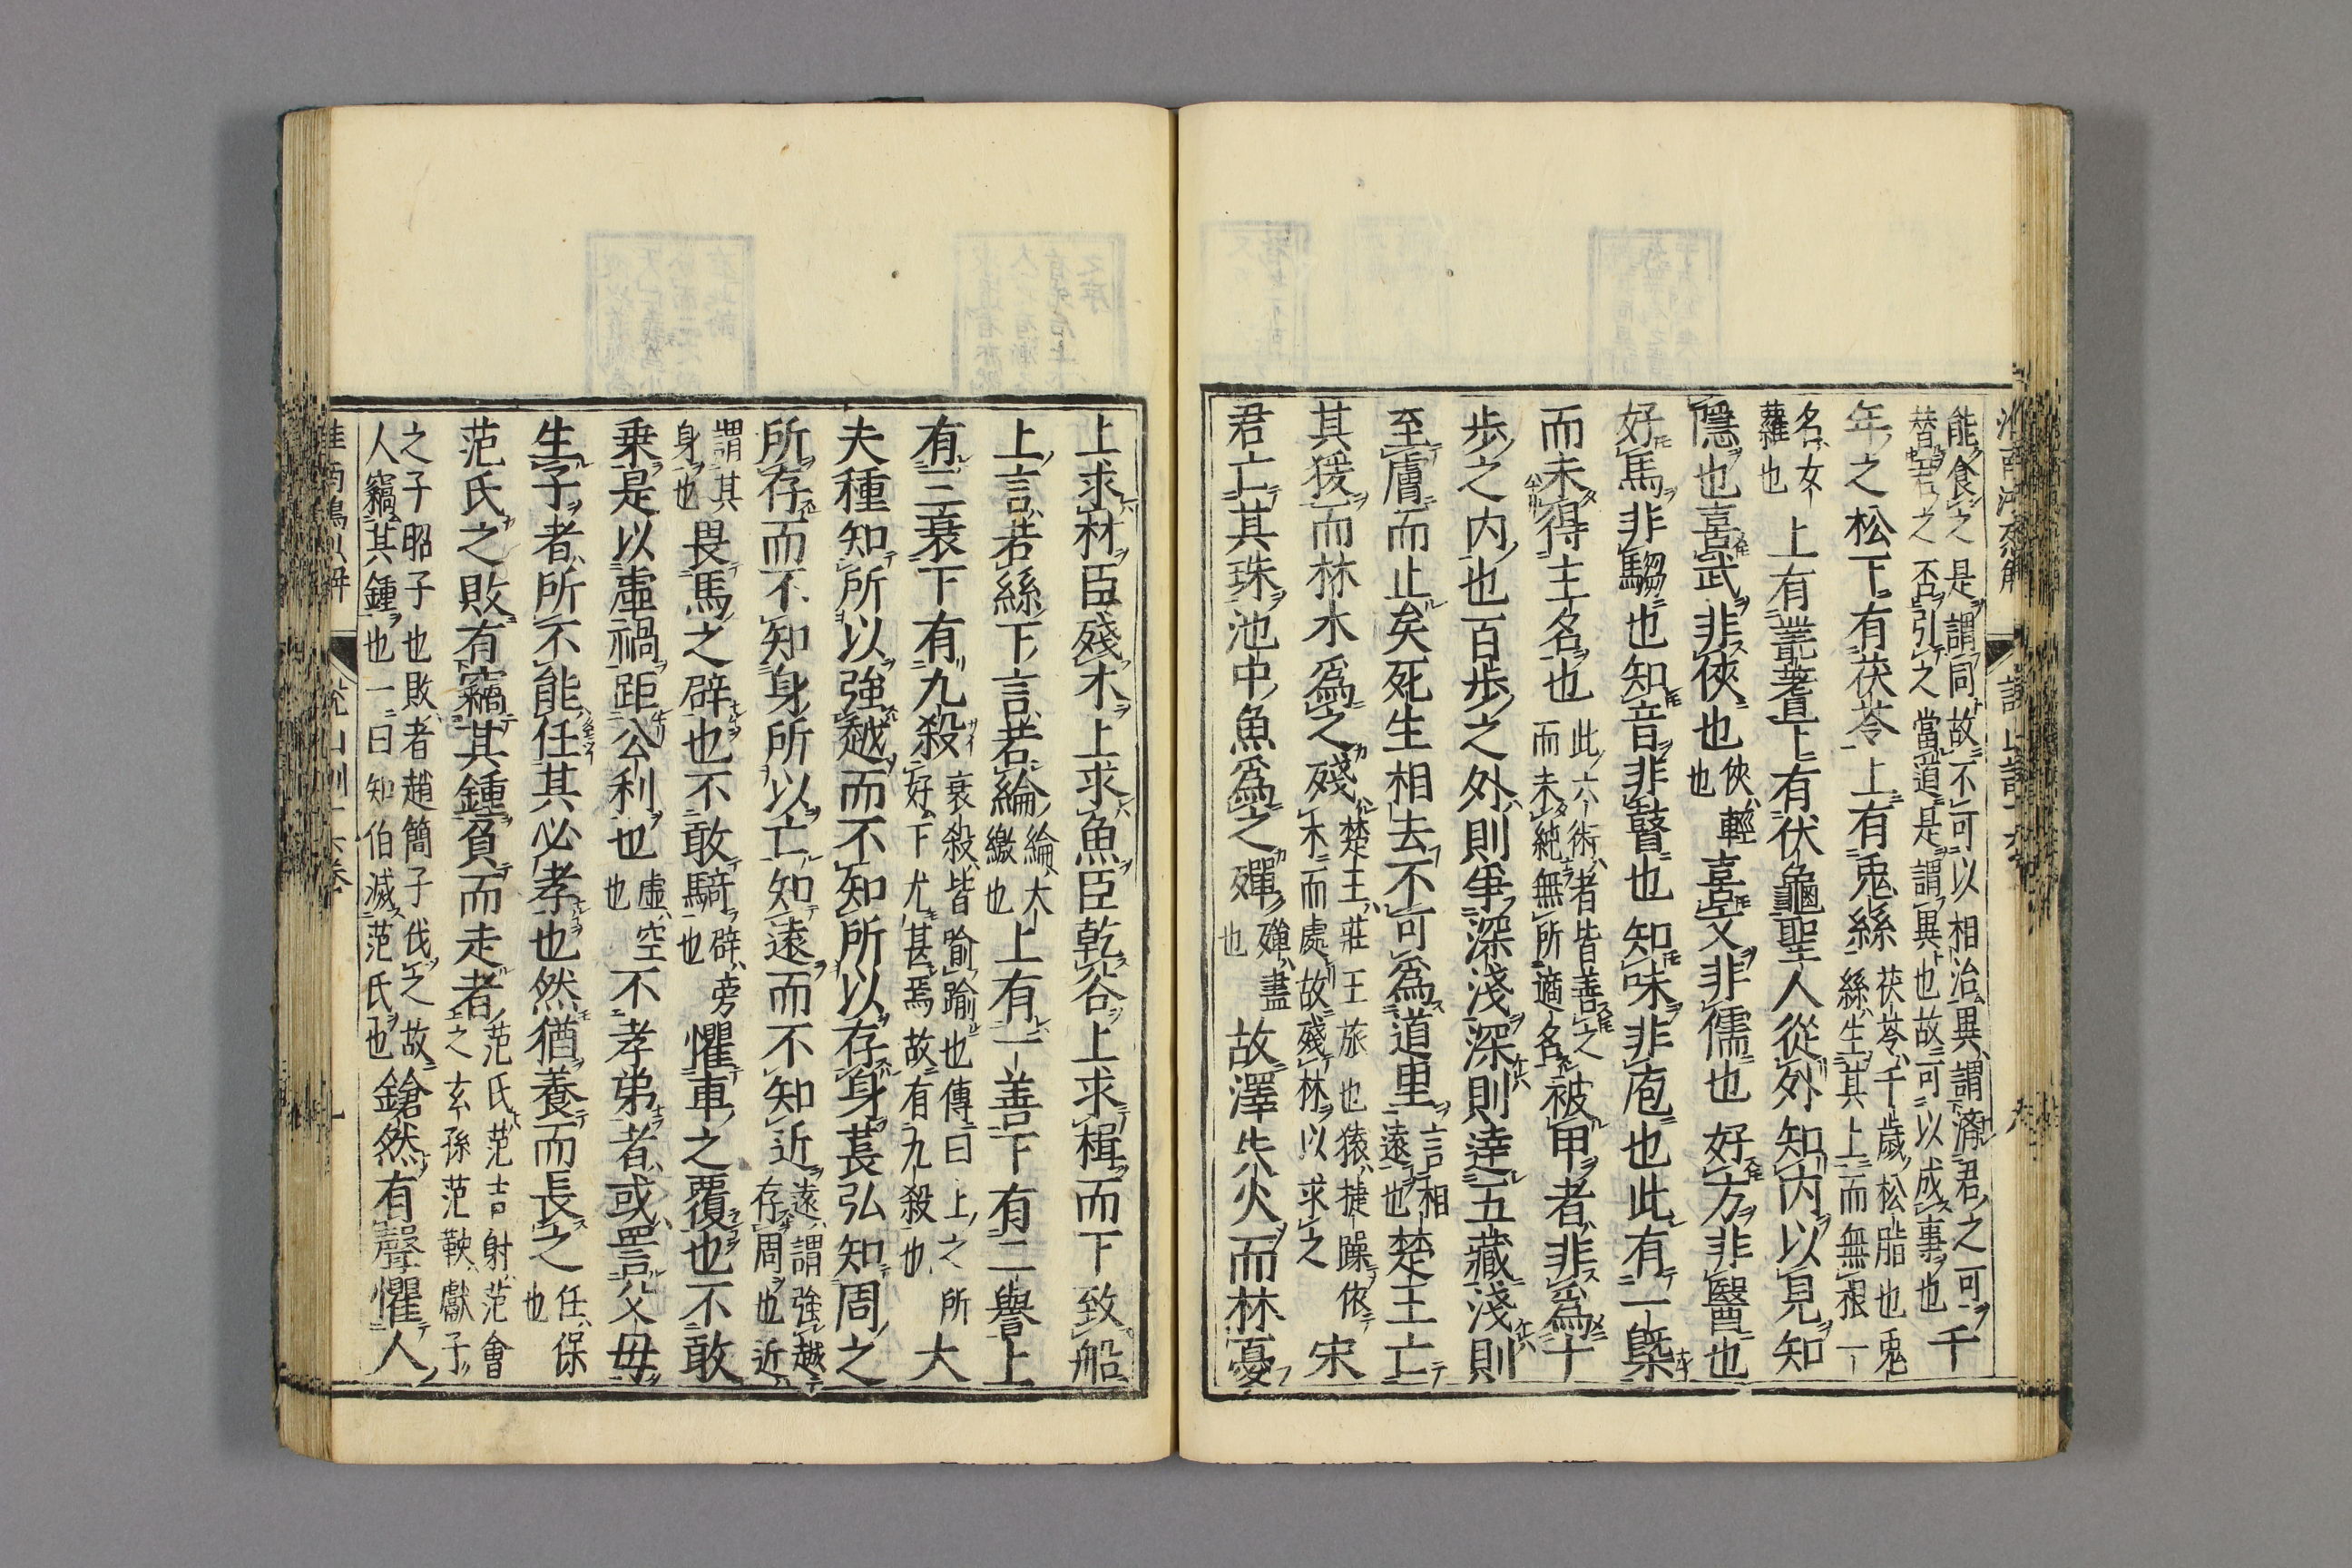 能食之是謂同故不可以相治異謂濟君之可
替否之否引之當道是謂異也故可以成事也千
年之松下有茯苓上有兎絲茯苓千歳松脂也兎絲生其上而無根一
名女蘿也上有叢蓍下有伏龜聖人從外知内以見知
隱也喜武非俠也俠輕也喜文非儒也好方非醫也
好馬非騶也知音非瞽也知味非庖也此有一槩
而未得主名也此六術者皆善之而未純無所適名被甲者非爲十
歩之内也百歩之外則爭深淺深則達五藏淺則
至膚而止矣死生相去不可爲道里言相遠也楚王亡
其猨而林木爲之殘楚王莊王旅也猿捷躁依木而處故殘林以求之宋
君亡其珠池中魚爲之殫殫盡也故澤失火而林憂
上求材臣殘木上求魚臣乾谷上求楫而下致船
上言若絲下言若綸綸大繳也上有一善下有二譽上
有三衰下有九殺衰殺皆喻踰也傳曰上之所好下尤甚焉故有九殺也大
夫種知所以強越而不知所以存身萇弘知周之
所存而不知身所以亡知遠而不知近遠謂強越存周也近
謂其身也畏馬之辟也不敢騎辟旁也懼車之覆也不敢
乗是以虛禍距公利也虛空也不孝弟者或詈父母
生子者所不能任其必孝也然猶養而長之任保也
范氏之敗有竊其鍾負而走者范氏范吉射范會之玄孫范鞅獻子
之子昭子也敗者趙簡子伐之故
人竊其鍾也一曰知伯滅范氏也鎗然有聲懼人